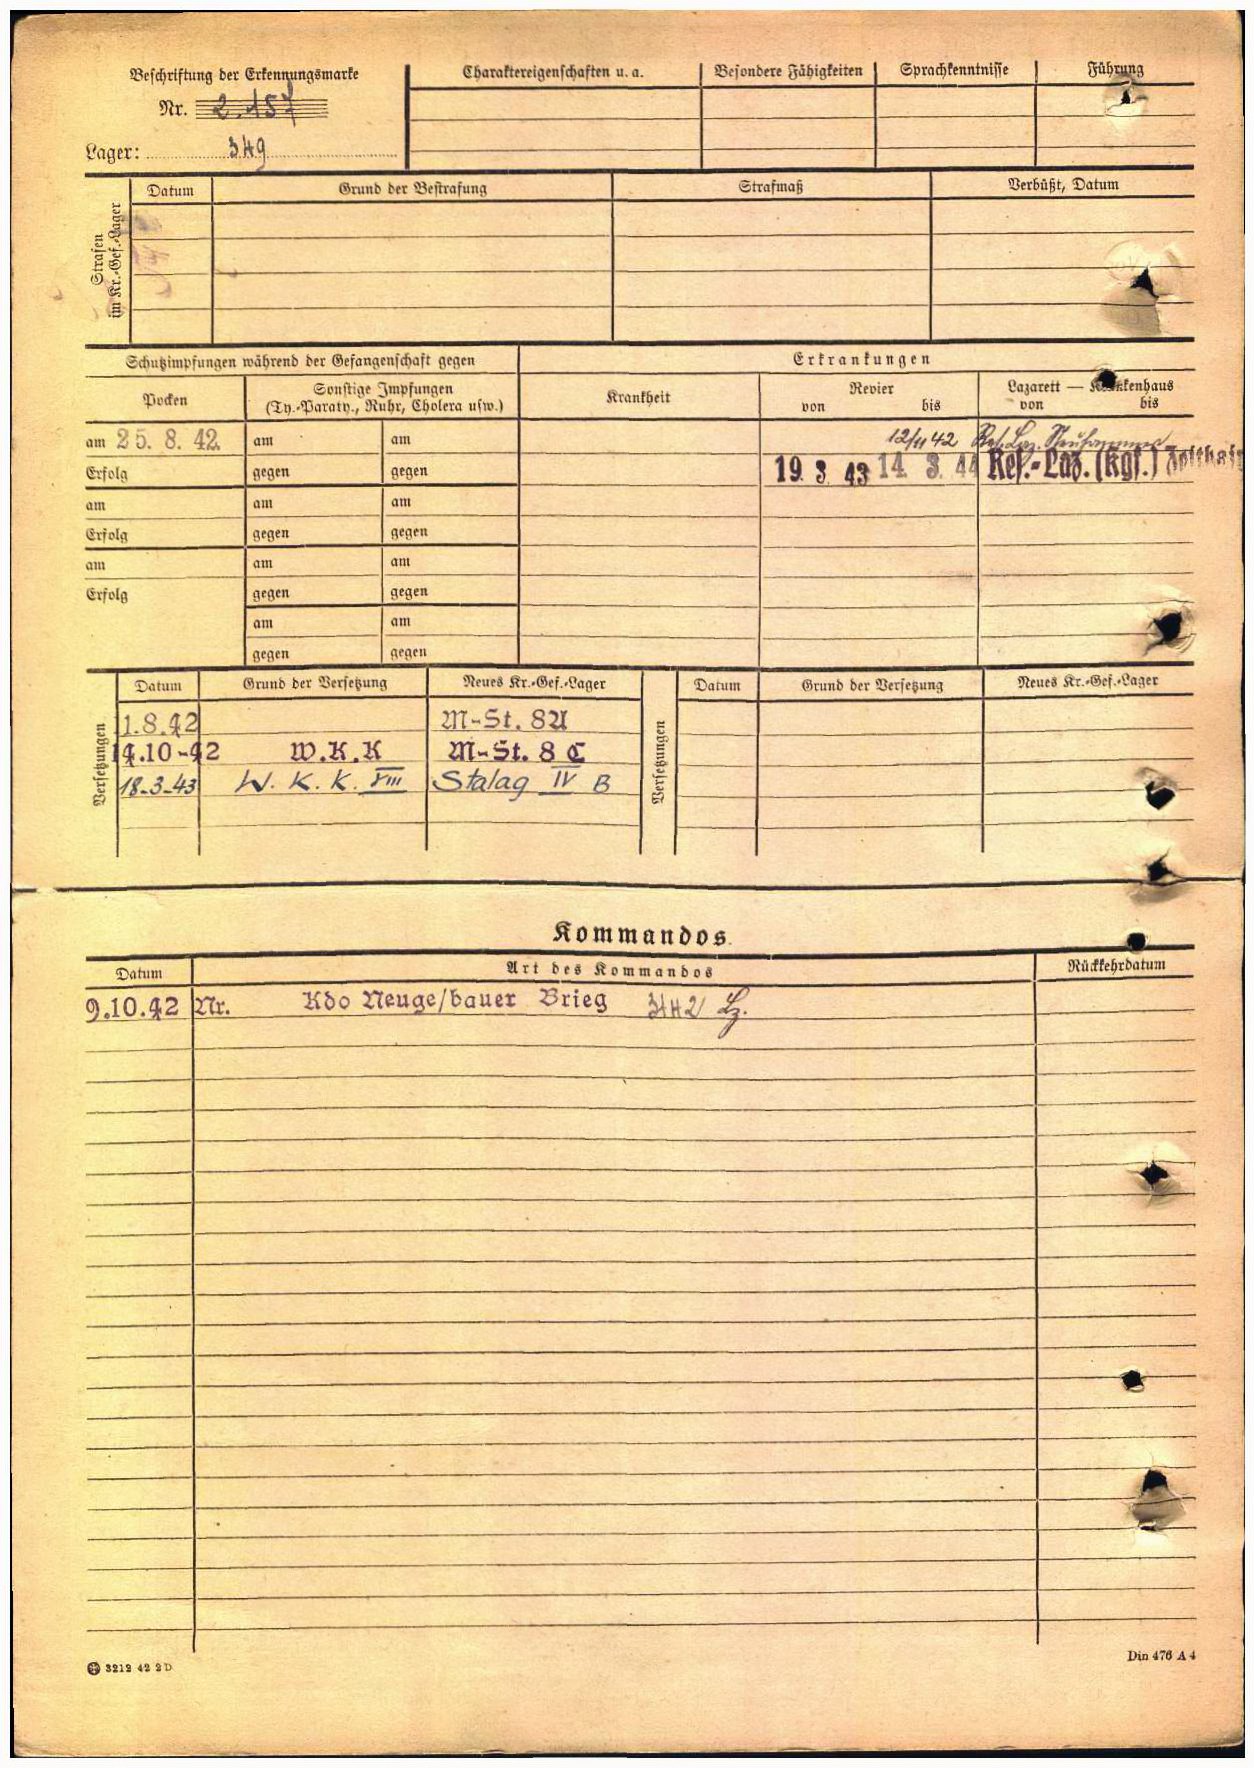 Beschriftung der Erkennungsmarke
Nr. 2.157
Lager: 349
Charaktereigenschaften u. a. Besondere Fähigkeiten Sprachkenntnisse Führung
Strafen im Kr.-Gef.-Lager
Datum Grund der Bestrafung Strafmaß Verbüßt, Datum
Schutzimpfungen während der Gefangenschaft gegen Erkrankungen
Pocken Sonstige Impfungen (Ty.-Paraty., Ruhr, Cholera usw.) Krankheit Revier von bis Lazarett — Krankenhaus von bis
am 25. 8. 42. am am 12/11 42 Res. Laz. Neuhammer
Erfolg gegen gegen 19 3 43 14. 3. 44 Res.-Laz. (Kgf.)
am am am
Erfolg gegen gegen
am am am
Erfolg gegen gegen
am am
gegen gegen
Versetzungen
Datum Grund der Versetzung Neues Kr.-Gef.-Lager
1.8.42 M-St. 8A
14.10-42 W.K.K M-St. 8 C
18-3-43 W. K. K. VIII Stalag IV B
Versetzungen
Datum Grund der Versetzung Neues Kr.-Gef.-Lager
Kommandos.
Datum Art des Kommandos Rückkehrdatum
9.10.42 Nr. Kdo Neuge/bauer Brieg 342 Lz.
3212 42 2 D
Din 476 A 4